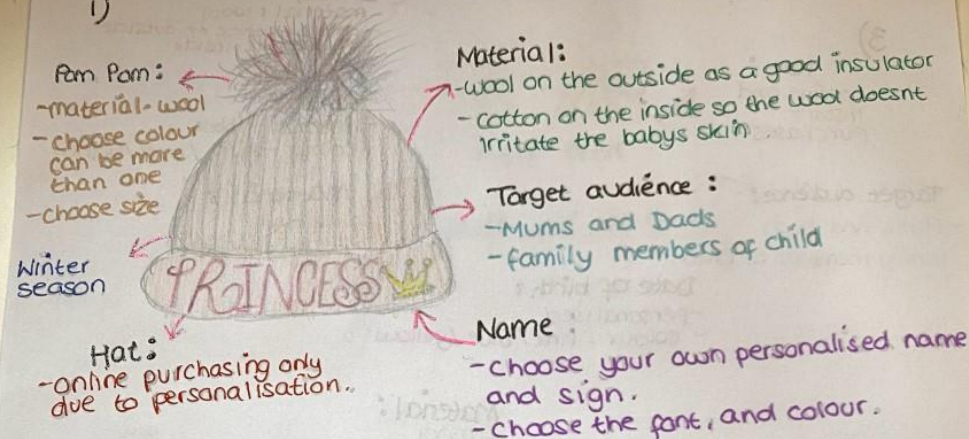 1)
Pom Pom:
-material-wool
-choose colour
can be more
than one
-choose size
Winter
season
Hat:
-online purchasing only
due to personalisation.
PRINCESS
Material:
-wool on the outside as a good insulator
-cotton on the inside so the wool doesnt
irritate the babys skin
Target audience:
-Mums and Dads
-family members of child
Name
-choose your own personalised name
and sign.
-choose the font, and colour.